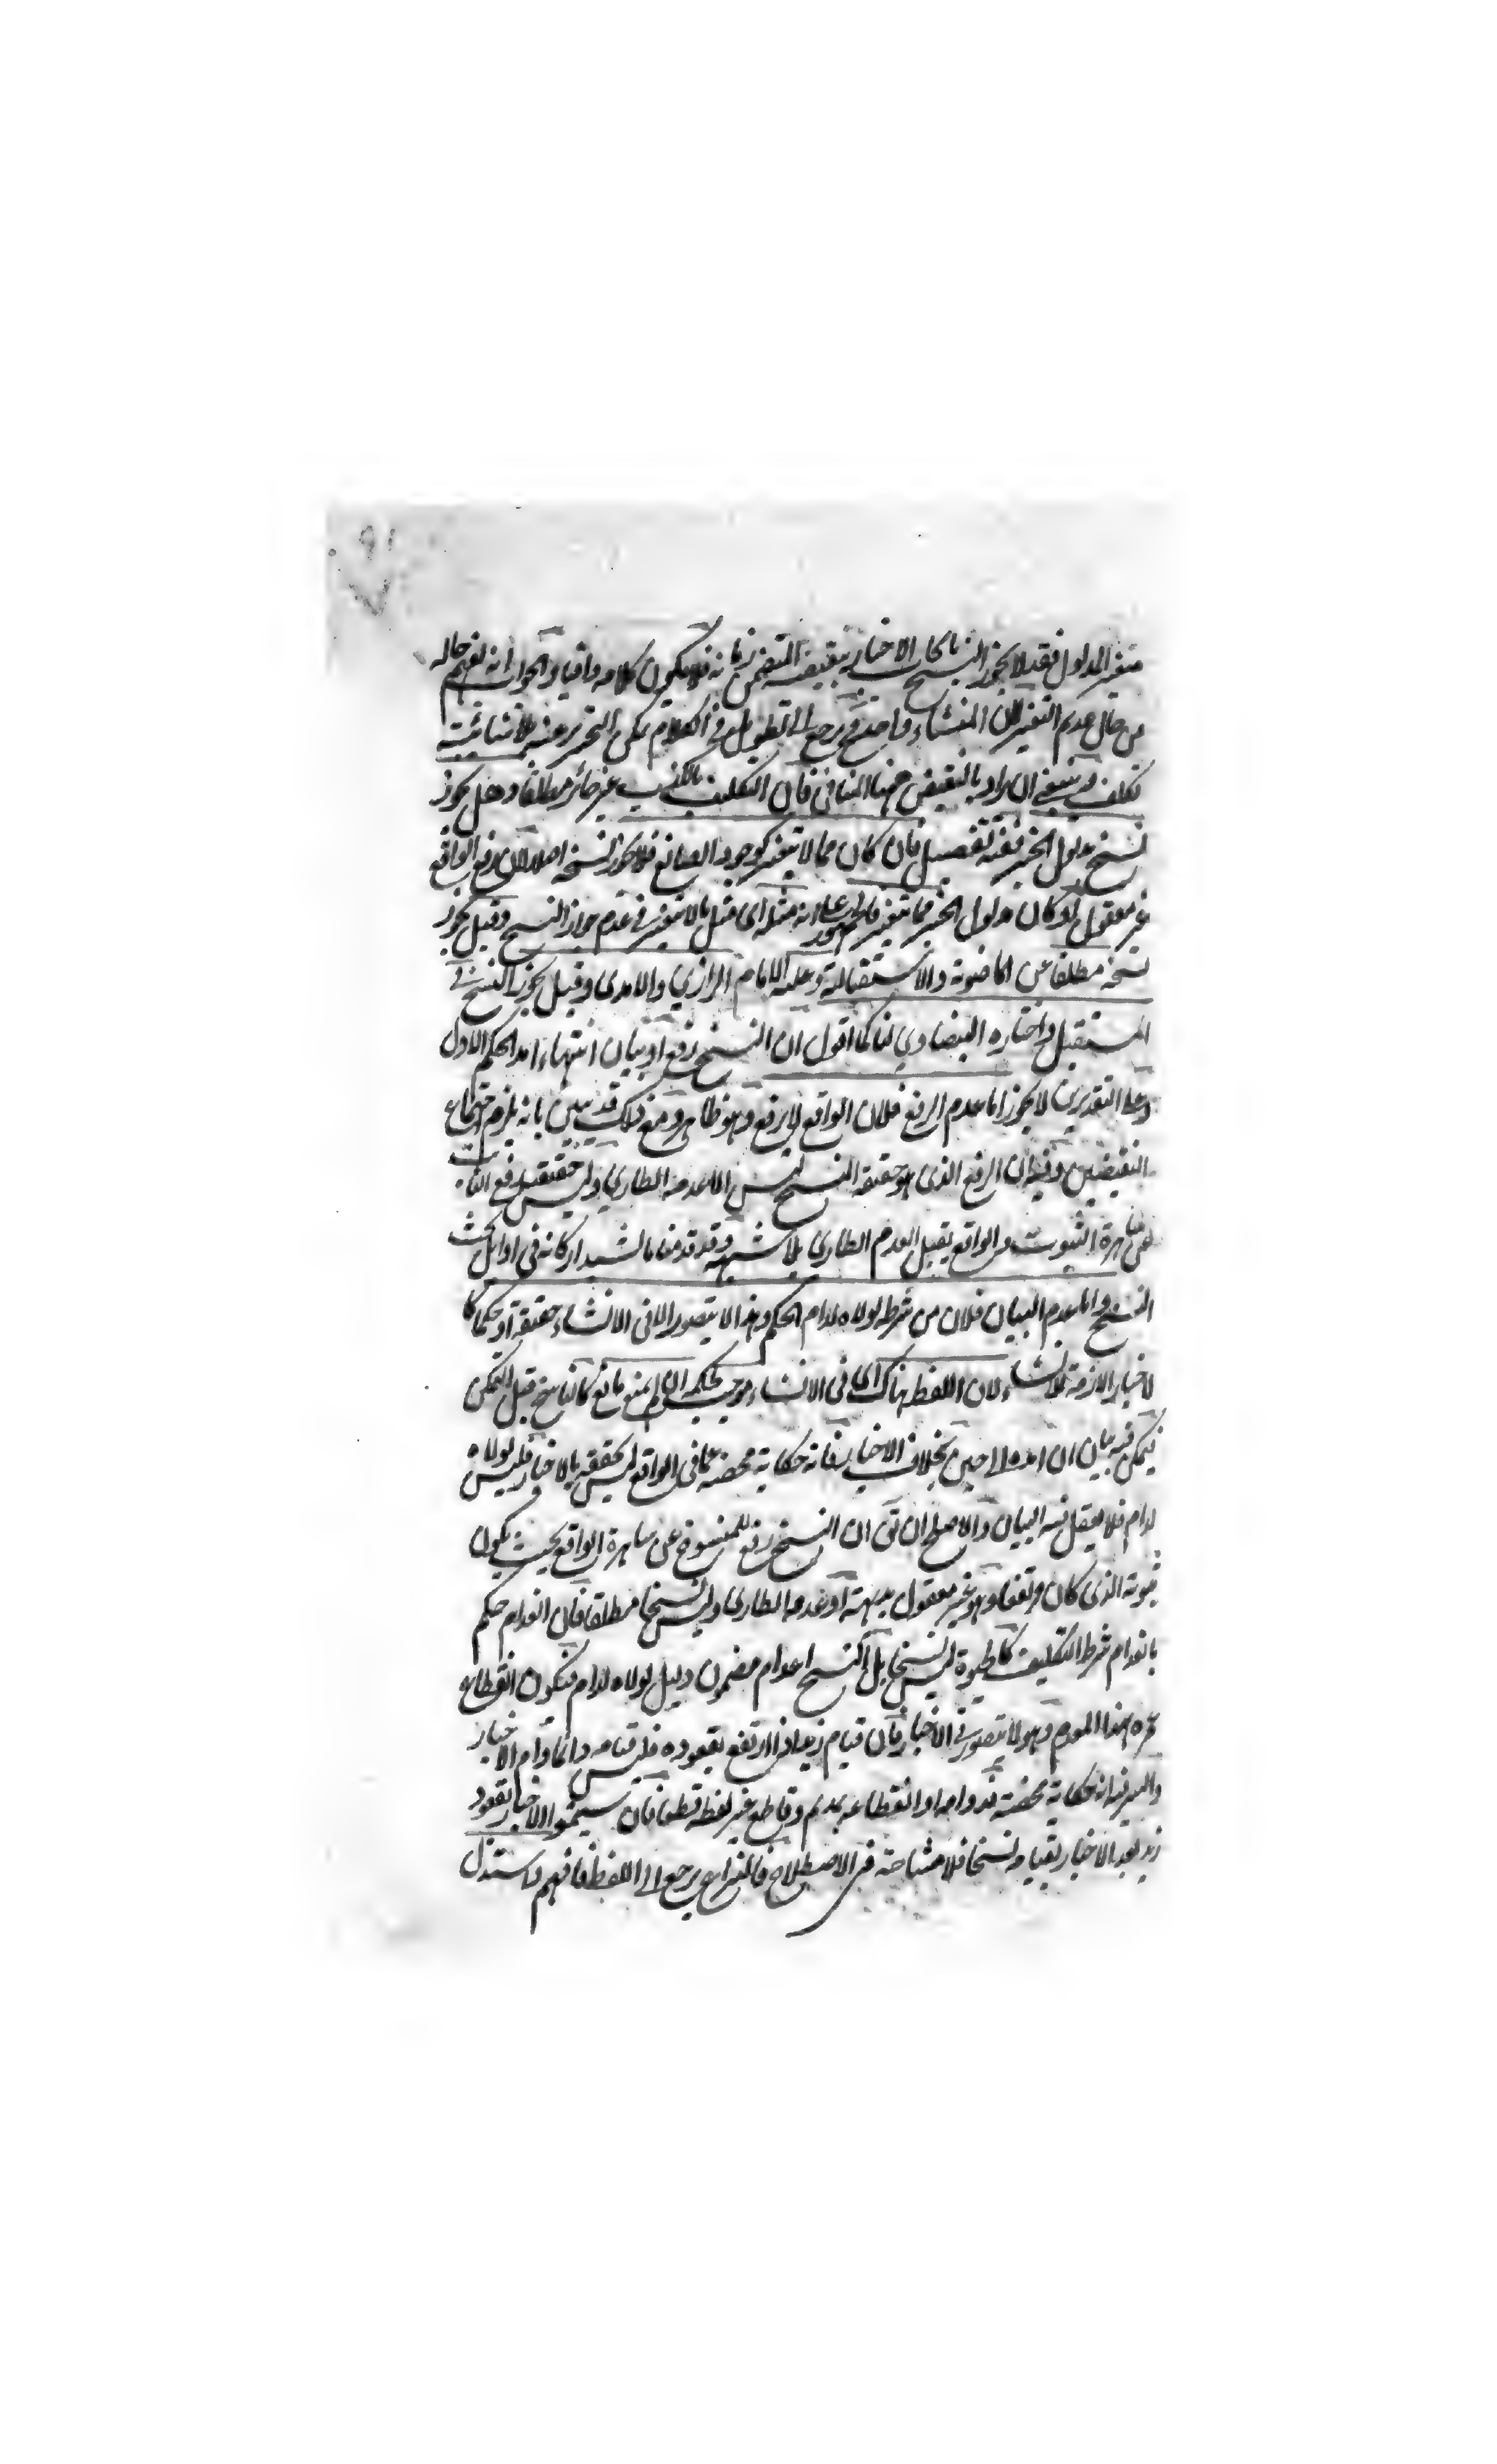 متغير المدلول فقد لا يجوز النسخ بايجاب الاخبار بنقيضه المتضمن زمانه فلا يكون كلامه وافيا والجواب انه يفهم حاله
من حال عدم التغير لان المنشاء واحد يرجع الى تطويل في الكلام يمكن التحرير عنه
تكلف وينبغى ان يراد بالنقيض ههنا المنافى فان التكليف بالكذب غير جائز مطلقا وهل يجوز
نسخ مدلول الخبر ففيه تفصيل فان كان مما لا يتغير كوجود الصانع فلا يجوز نسخه اصلا لان رفع الواقع
غير معقول ولو كان مدلول الخبر مما يتغير فالجمهور على انه مثله اى مثل ما لا يتغير في عدم جواز النسخ وقيل يجوز
نسخه مطلقا عن الماضوية والاستقبالية وعليه الامام الرازي والامدى وقيل يجوز النسخ في
المستقبل واختاره البيضاوي لنا كما اقول ان النسخ رفع او بيان انتهاء امد الحكم الاول
وعلى التقديرين لا يجوز اما عدم الرفع فلان الواقع لا يرفع وهو ظاهر ومنع ذلك قد يبين بانه يلزم اجتماع
النقيضين وفيه ان الرفع الذى هو حقيقة النسخ ليس الا عدمه الطارى وليس حقيقته رفع الثابت
عن ساهرة الثبوت والواقع يقبل العدم الطارى بلا شبهة وقد قدمنا ما لشيد اركانه فى اوائل بحث
النسخ واما عدم البيان فلان من شرطه لولاه لدام الحكم وهذا لا يتصور الا فى الانشاء حقيقة او حكما كا
لاخبار اللازمة للانشاء لان اللفظ هناك اى فى الانشاء موجب لحكمه ان لم يمنع مانع كالناسخ قبل التمكن
فيمكن فيه بيان ان امده الى حين بخلاف الاخبار فانه حكاية محضة عما فى الواقع ليس تحققه بالاخبار فليس لولاه
لدام فلا يعقل فيه البيان والاصل ان يق ان النسخ رفع للمنسوخ عن ساهرة الواقع بحيث يكون
ثبوته الذى كان مرتفعا وهو غير معقول بديهة او عدمه الطارى وليس نسخا مطلقا فان انعدام حكم
بانعدام شرط التكليف كالحيوة ليس نسخا بل النسخ اعدام مضمون دليل لولاه لدام فيكون انقطاع
عمره بهذا المعدم وهو لا يتصور في الاخبار فان قيام زيد اذا ارتفع بقعوده فليس قيامه دائما دوام الاخبار
والسر فيه انه حكاية محضة فدوامه او انقطاعه بمديم وقاطع غير لفظه قطعا فان سيتموا الاخبار بقعود
زيد بعد الاخبار بقيامه نسخا فلا مشاحة فى الاصطلاح فالنزاع يرجع الى اللفظ فافهم واستدل